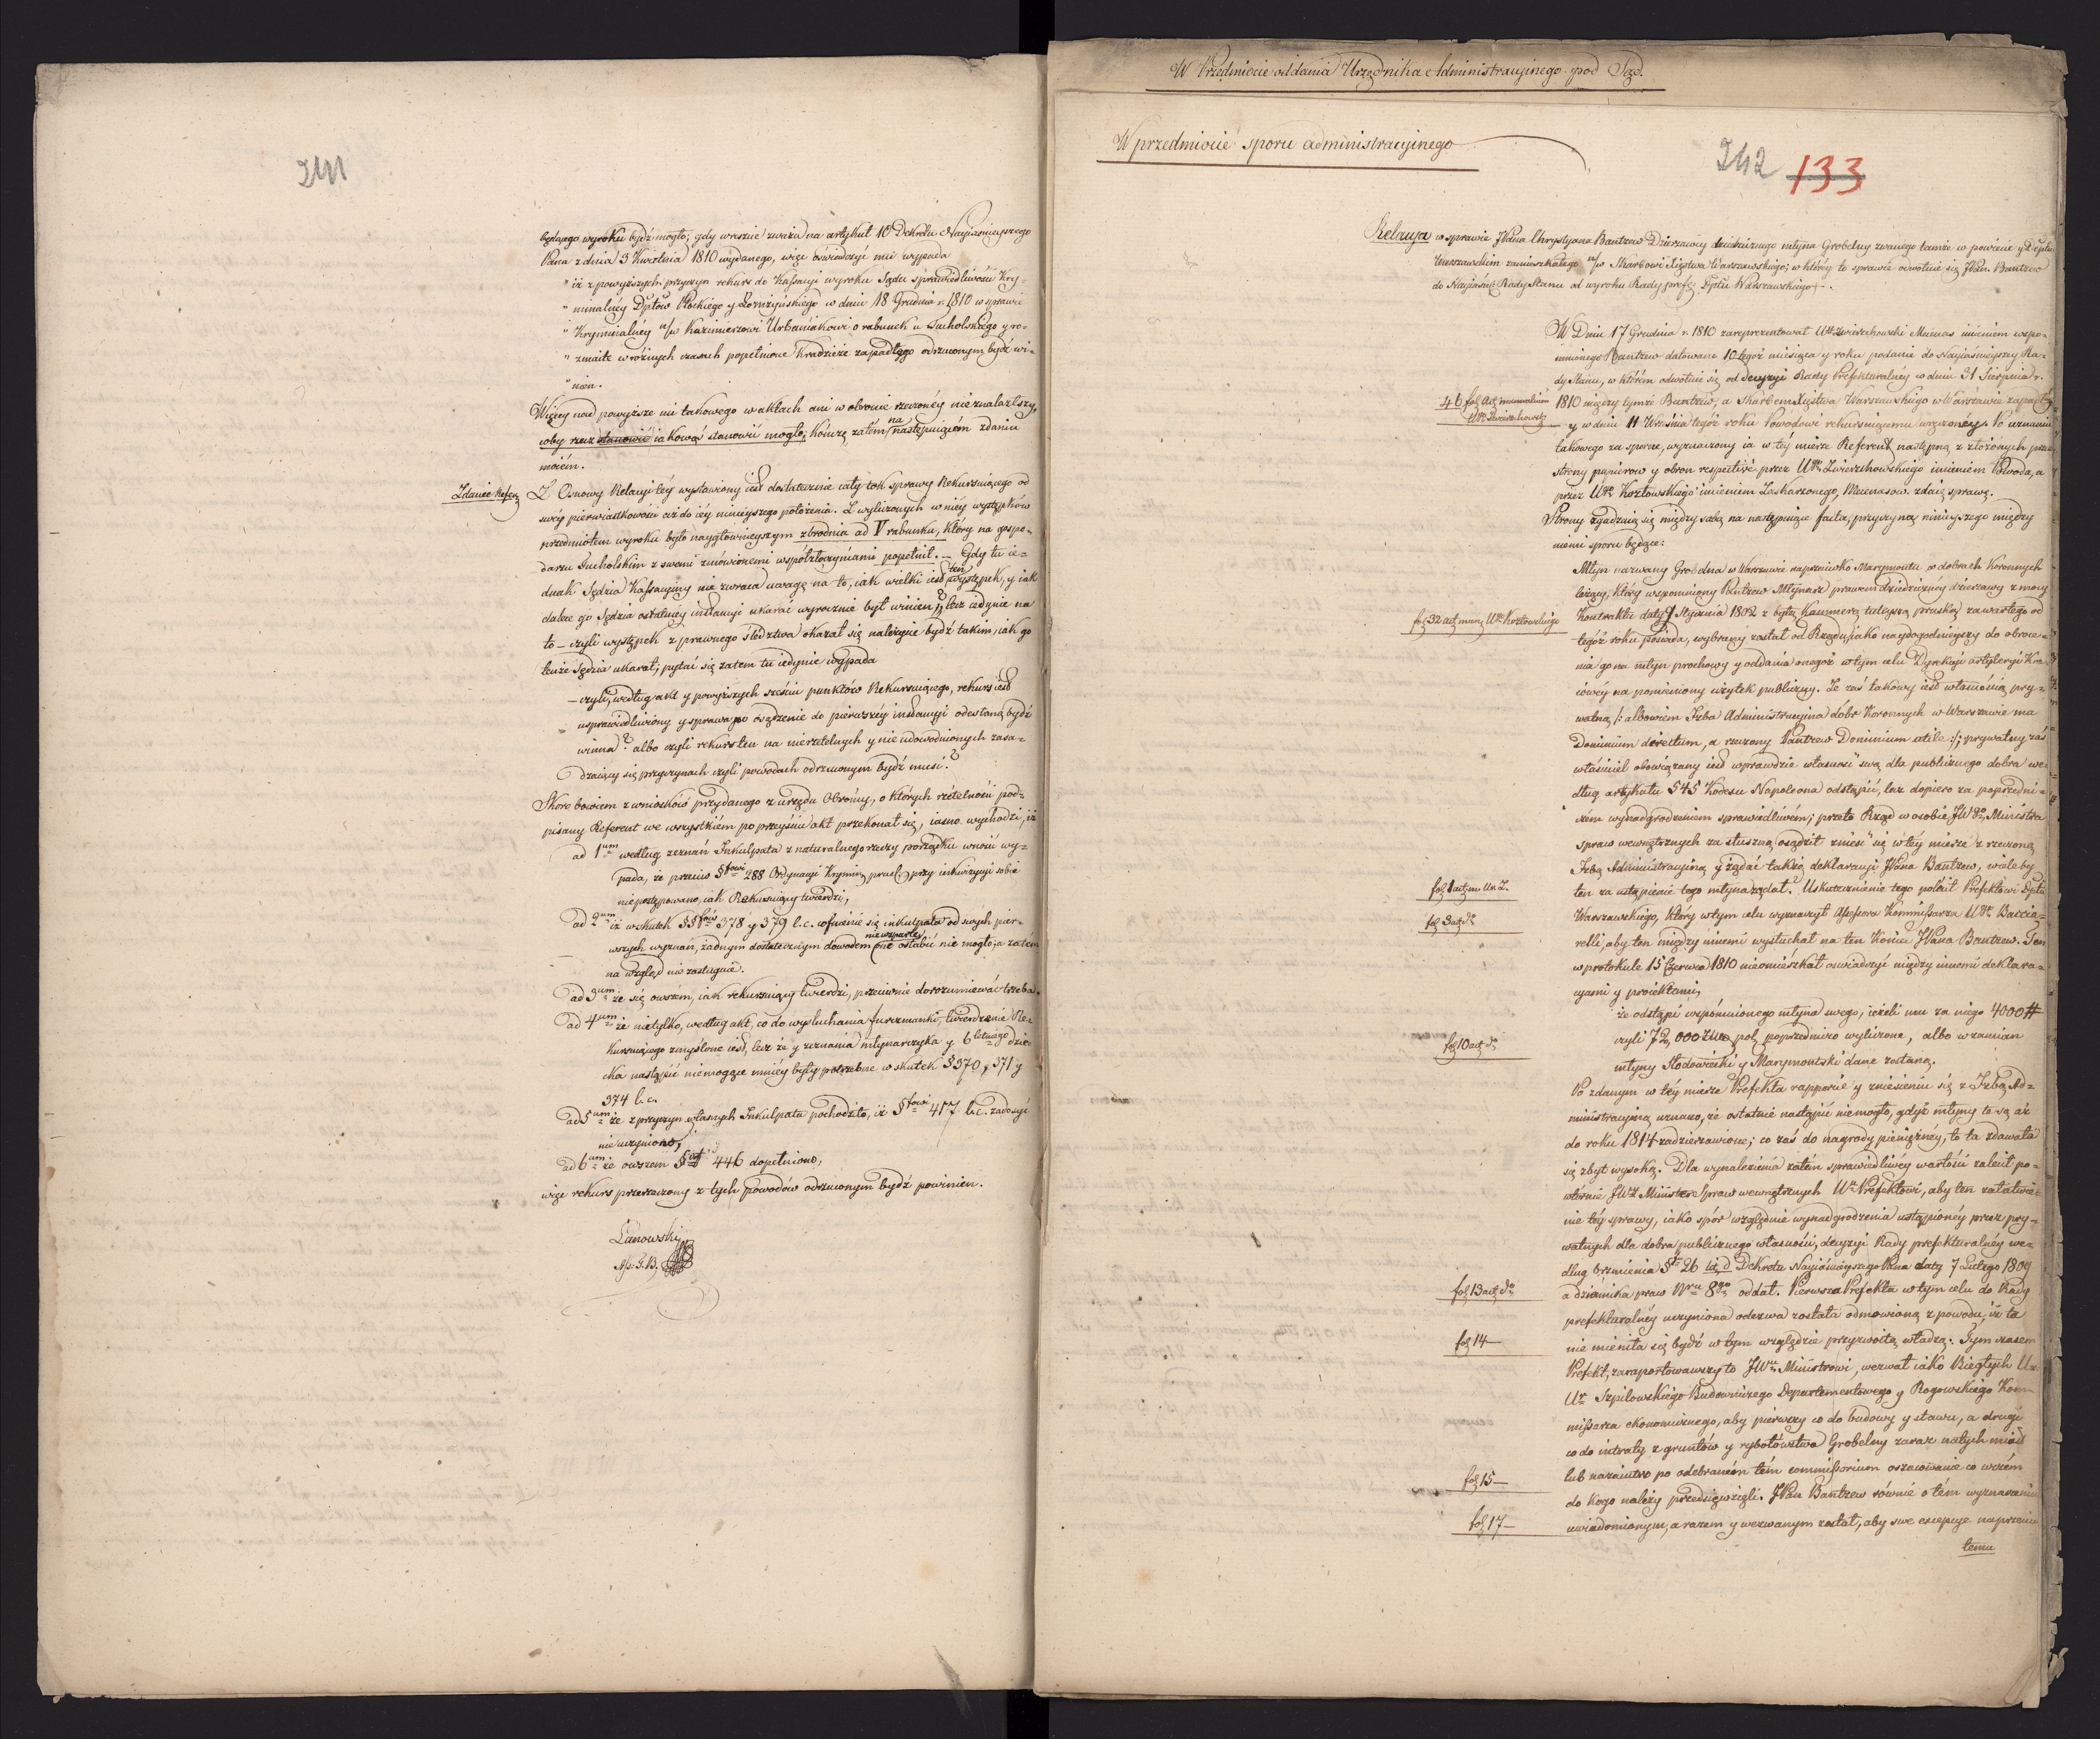 241
będącego wyroku bydź mogło; gdy wreszcie zważa na artykuł 10 Dekretu Nayiaśnieyszego
Pana z dnia 3 Kwietnia 1810 wydanego, więc oświadczyć mu wypada
" iż z powyższych przyczyn rekurs do Kassacyi wyroku Sądu sprawiedliwości Kry-
" minalney Dptów Płockiego y Łomżyńskiego w dniu 18 Grudnia r. 1810 w sprawie
" Kryminalnéy n/w Kazimierzowi Urbaniakowi o rabunek u Sucholskiego y ro-
" zmaite w różnych czasach popełnione Kradzieże zapadłego odrzuconym bydź wi-
" nien.
Więcey nad powyższe nic takowego w aktach ani w obronie rzeczonéy nie znalazłszy,
coby rzecz stanowić iakowąś stanowić mogło; kończę zatém na następuiącem zdaniu
moiém.
Zdanie Refer.
Z Osnowy Relacyi téy wystawiony iest dostatecznie cały tok sprawy Rekursuiącego od
swéy pierwiastkowości aż do iéy ninieyszego położenia. Z wyliczonych w niéy występków
przedmiotem wyroku było naygłównieyszym zbrodnia ad V rabunku, który na gospo-
darzu Sucholskim z swemi zmówionemi współzłoczyńcami popełnił. — Gdy tu ie-
dnak Sędzia Kassacyiny nie zwraca uwagę na to, iak wielki iest ten występek, y iak
dalece go Sędzia ostatniéy instancyi ukarać wyrocznie był winien, lecz iedynie na
to — czyli występek z prawnego śledztwa okazał się należycie bydź takim, iak go
tenże Sędzia ukarał; pytać się zatem tu iedynie wypada
— czyli, według akt y powyższych sześciu punktów Rekursuiącego, rekurs iest
usprawiedliwiony y sprawa po osądzenie do pierwszéy instancyi odesłaną bydź
winna? albo czyli rekurs ten na nierzetelnych y nie udowodnionych zasa-
dzaiący się przyczynach czyli powodach odrzuconym bydź musi?
Skoro bowiem z wniosków przydanego z urzędu Obrońcy, o których rzetelności pod-
pisany Referent we wszystkiém po przeyściu akt przekonał się, iasno wychodzi, iż
ad 1um według zeznań Inkulpata z naturalnego rzeczy porządku wnosić wy-
pada, że przeciw §fowi 288 Ordynacyi Krymin. prus. przy inkwizycyi sobie
nie postępowano, iak Rekursuiący twierdzi,
ad 2um iż w skutek §§fów 378 y 379 l.c. cofnienie się inkulpata od swych pier-
wszych wyznań, żadnym dostatecznym dowodem niewsparte, one osłabić nie mogło, a zatém
na wzgląd nie zasługuie.
ad 3um że się owszem, iak rekursuiący twierdzi, przeciwnie dorozumiewać trzeba.
ad 4um że nietylko, według akt, co do wysłuchania furczmanki, twierdzenie Re-
kursuiącego zmyślone iest, lecz że y zeznania młynarczyka y 6 letniego dzie-
cka nastąpić niemogące mniéy były potrzebne w skutek §370, 371 y
374 l.c.
ad 5um że z przyczyn własnych Inkulpata pochodziło, iż §fowi 417 l.c. zadosyć
nie uczyniono,
ad 6um że owszem §owi 446 dopełniono,
więc rekurs przerzeczony z tych powodów odrzuconym bydź powinien.
Lanowski
Ass. S. R.
W Przedmiocie oddania Urzędnika Administracyinego pod Sąd.
W przedmiocie sporu administracyinego
242 133
Relacya w sprawie JPana Chrystyana Bantzew Dzierżawcy dziedzicznego młyna Grobelny zwanego tamże w powiecie y Dpcie
Warszawskim zamieszkałego n/w Skarbowi Xięstwa Warszawskiego; w któréy to sprawie odwołuie się JPan Bantzew
do Nayiaśn. Rady Stanu od wyroku Rady pref. Dptu Warszawskiego.
W Dniu 17 Grudnia r. 1810 zareprezentował Ur. Zwierzchowski Mecenas imieniem wspo-
mnionego Bantzew datowane 10 tegoż miesiąca y roku podanie do Nayiaśnieyszey Ra-
dy Stanu, w którém odwołuie się od decyzyi Rady Prefekturalnéy w dniu 31 Sierpnia r.
46 fol. act. manualium
Ur. Zwierzchowsk.
1810 między tymże Bantzew, a Skarbem Xięstwa Warszawskiego w Warszawie zapadłéy
y w dniu 11 Września tegoż roku Powodowi rekursuiącemu wręczonéy. Po uznaniu
takowego za sporne, wyznaczony ia w téy mierze Referent następną z złożonych przez
strony papierów y obron respective przez Ur. Zwierzchowskiego imieniem Powoda, a
przez Ur. Kozłowskiego imieniem Zaskarżonego, Mecenasów zdaię sprawę.
Strony zgadzaią się między sobą na następuiące facta, przyczyną ninieyszego między
niemi sporu będące:
Młyn nazwany Grobelna w Warszawie naprzeciwko Marymontu w dobrach Koronnych
leżący, który wspomniony Bantzew Młynarz prawem dziedzicznéy dzierżawy z mocy
fol. 32 act. man. Ur. Kozłowskiego
Kontraktu daty 1 Stycznia 1802 z byłą Kammerą tuteyszą pruską zawartego od
tegoż roku posiada, wybrany został od Rządu, iako naydogodnieyszy do obróce-
nia go na młyn prochowy y oddania onegoż w tym celu Dyrekcyi artylleryi Kra-
iowéy na pomieniony użytek publiczny. Że zaś takowy iest własnością pry-
watną /: albowiem Izba Administracyina dóbr Koronnych w Warszawie ma
Dominium directum, a rzeczony Bantzew Dominium utile :/; prywatny zaś
właściciel obowiązany iest wprawdzie własność swą dla publicznego dobra we-
dług artykułu 545 Kodexu Napoleona odstąpić, lecz dopiero za poprzedni-
czem wynadgrodzeniem sprawiedliwém; przeto Rząd w osobie JWgo Ministra
spraw wewnętrznych za słuszną osądził znieść się w téy mierze z rzeczoną
Izbą Administracyiną y żądać także deklaracyi JPana Bantzew, wieleby
fol. 1 act. m. Ur. Z.
ten za ustąpienie tego młyna żądał. Uskutecznienie tego polecił Prefektowi Dptu
fol. 3 act. do
Warszawskiego, który w tym celu wyznaczył Assessora Kommissarza Ur. Baccia-
relli, aby ten między innemi wysłuchał na ten koniec JPana Bantzew. Ten
w protokule 15 Czerwca 1810 nieomieszkał oświadczyć między innemi deklara-
cyami y proiektami,
że odstąpi wspomnionego młyna swego, ieżeli mu za niego 4000 #
fol. 10 act. do
czyli 72,000 złło. pol. poprzedniczo wyliczone, albo w zamian
młyny Słodowiecki y Marymontski dane zostaną.
Po zdanym w téy mierze Prefekta rapporcie y zniesieniu się z Izbą Ad-
ministracyiną uznano, że ostatnie nastąpić niemogło, gdyż młyny te są aż
do roku 1814 zadzierżawione; co zaś do nagrody pieniężnéy, te ta zdawała
się zbyt wysoką. Dla wynalezienia zatém sprawiedliwéy wartości zalecił po-
wtórnie JWny Minister Spraw wewnętrznych Wu Prefektowi, aby ten załatwie-
nie téy sprawy, iako spór względnie wynadgrodzenia ustąpionéy przez pry-
watnych dla dobra publicznego własności, decyzyi Rady prefekturalnéy we-
dług brzmienia § 26 lit. d Dekretu Nayiaśnieyszego Pana daty 7 Lutego 1809
fol. 13 act. do
a dziennika praw Nru 8go oddał. Pierwsza Prefekta w tym celu do Rady
prefekturalnéy uczyniona odezwa została odmówioną z powodu, iż ta
fol. 14 —
nie mieniła się bydź w tym względzie przyzwoitą władzą. Tymczasem
Prefekt, zaraportowawszy to JWu Ministrowi, wezwał iako Biegłych
Ur. Szpilowskiego Budowniczego Departamentowego y Rogowskiego Kom-
missarza ekonomicznego, aby pierwszy co do budowy y stawu, a drugi
co do intraty z gruntów y rybołówstwa Grobelny zaraz natychmiast
fol. 15 —
lub nazaiutrz po odebraniem tém commissorium oszacowanie co wczém
do kogo należy przedsięwzięli. JPan Bantzew również o tém wyznaczeniu
fol. 17 —
uwiadomionym, a razem y wezwanym został, aby swe excepcye naprzeciw
temu